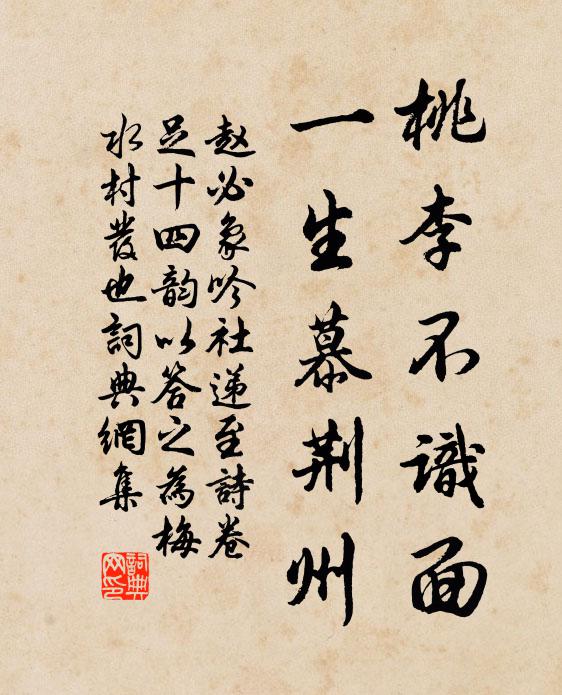 桃李不識面
一生慕荆州
赵必象吟社递至詩卷
足十四韵以答之為梅
水村發也詞典網集
詞典
网印